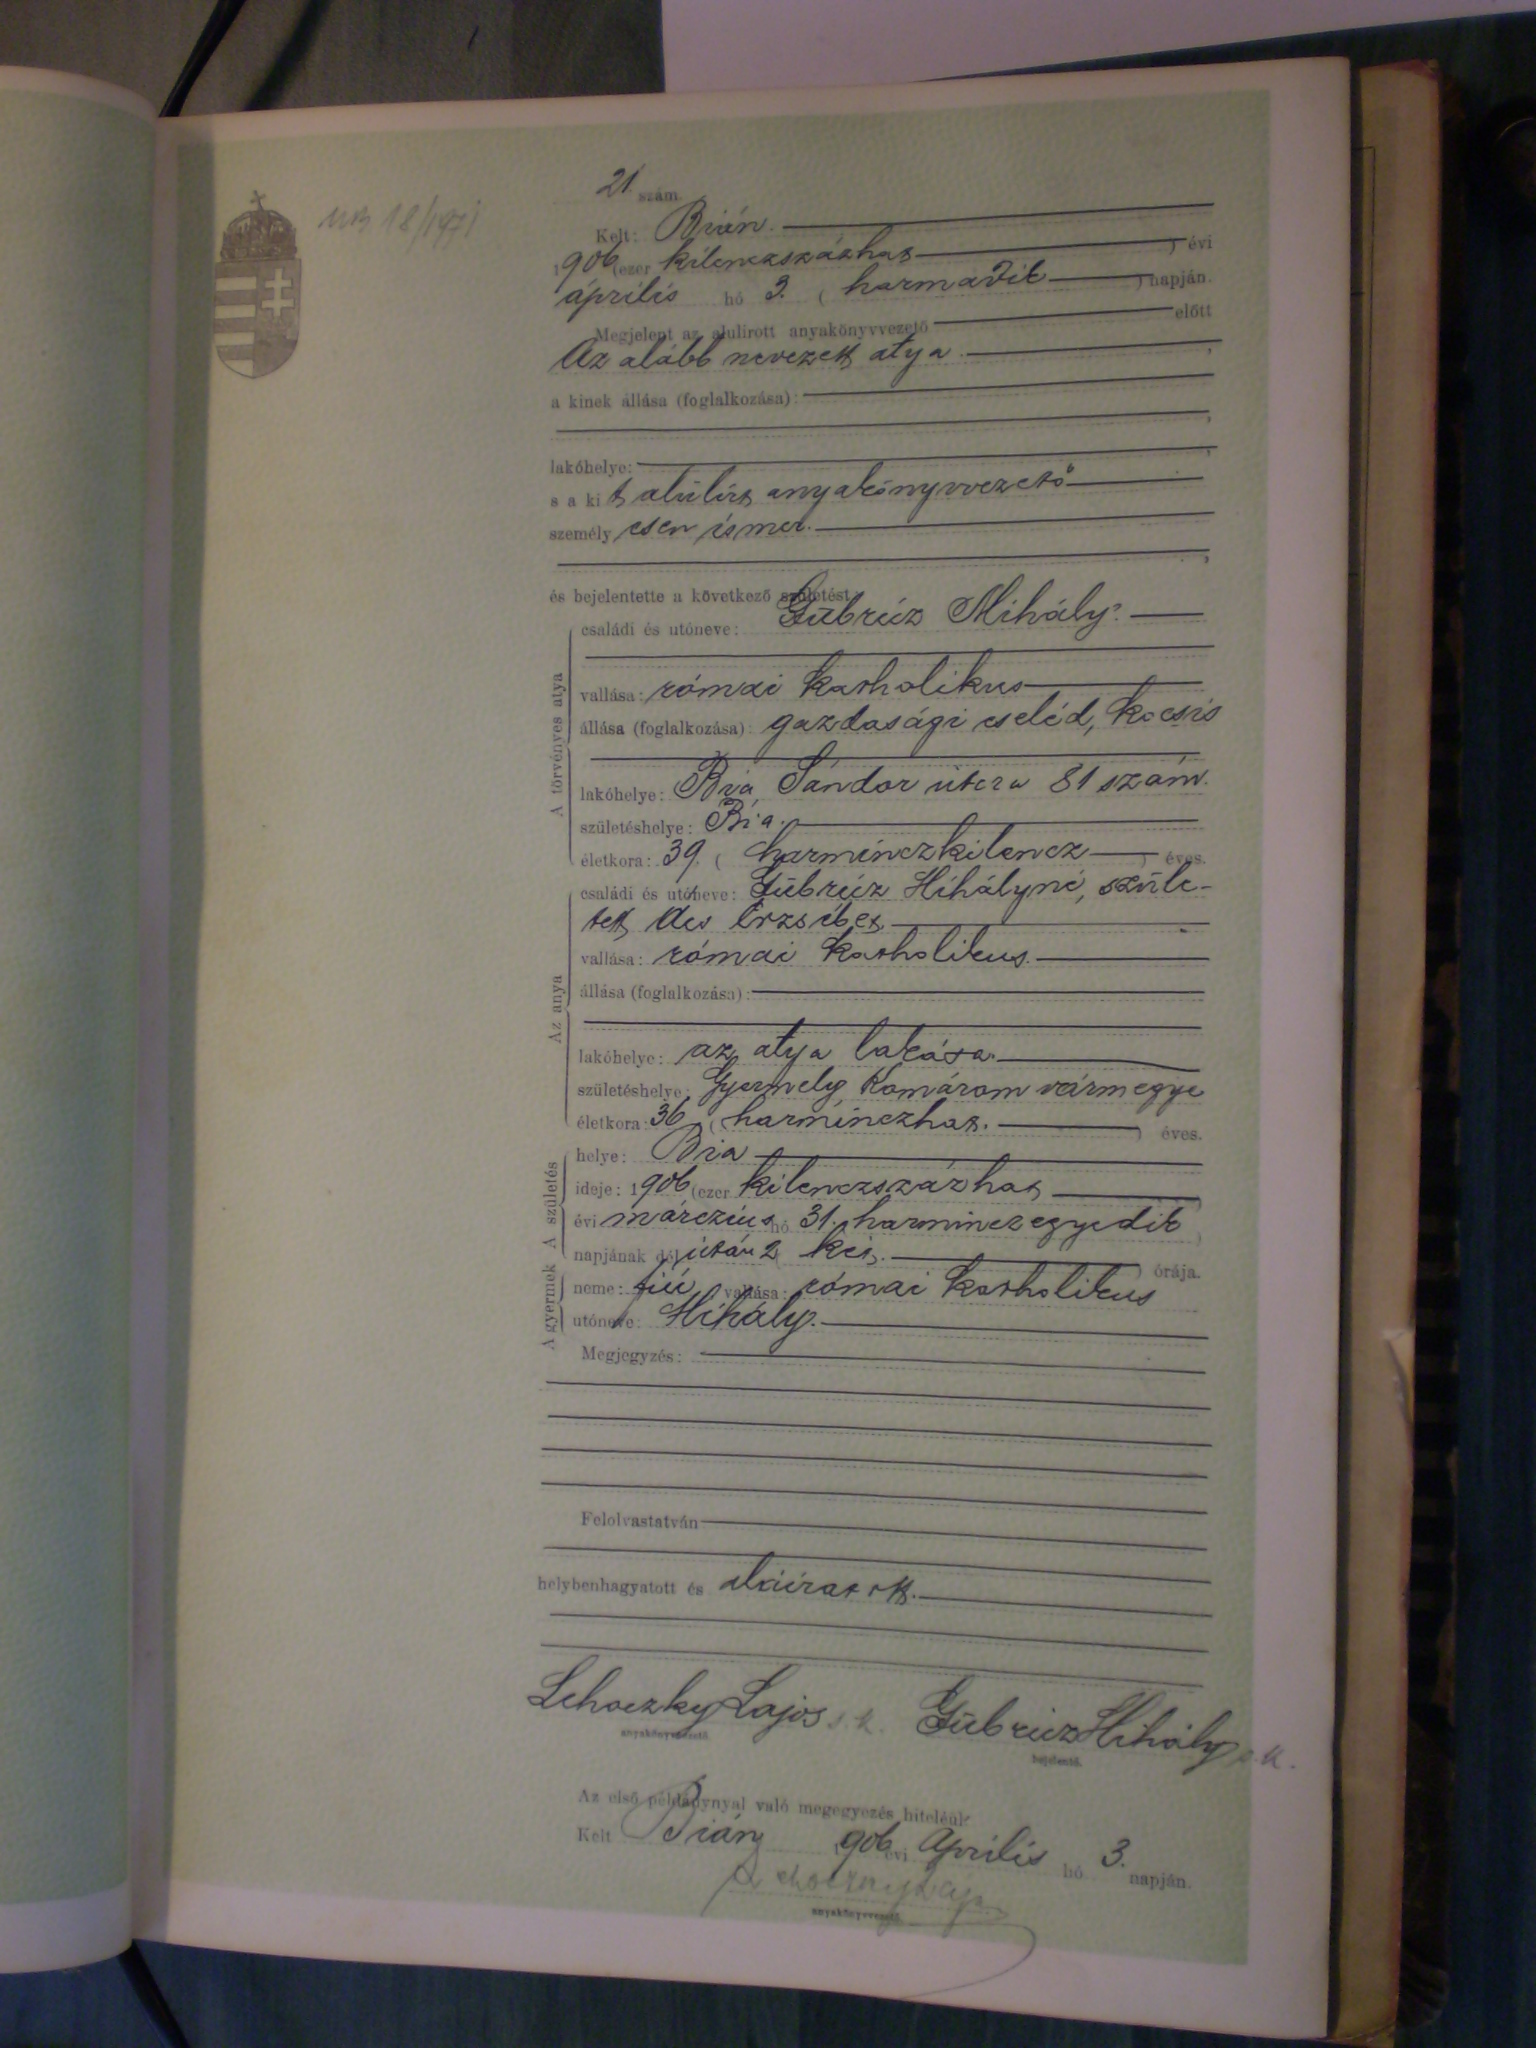 21 szám.
18/1971
Kelt: Bián.
1906 (ezer kilenczszázhat ) évi
április hó 3. ( harmadik ) napján.
Megjelent az alulirott anyakönyvvezető előtt
Az alább nevezett atya ,
a kinek állása (foglalkozása):
,
lakóhelye: ,
s a kit alúlírt anyakönyvvezető
személyesen ismer.
,
és bejelentette a következő születést:
A törvényes atya
családi és utóneve: Gübrüz Mihály.
vallása: római katholikus
állása (foglalkozása): gazdasági cseléd, kocsis
lakóhelye: Bia Sándor útcza 81 szám.
születéshelye: Bia.
életkora: 39. ( harminczkilencz ) éves.
Az anya
családi és utóneve: Gübrüz Mihályné, szüle-
tett Ács Erzsébet
vallása: római katholikus.
állása (foglalkozása):
lakóhelye: az atya lakása.
születéshelye: Gyermely, Komárom vármegye
életkora: 36 ( harminczhat. ) éves.
A születés
helye: Bia
ideje: 1906 (ezer kilenczszázhat )
évi márczius hó 31. harminczegyedik )
napjának dél után 2 két. ) órája.
A gyermek
neme: fiú vallása: római katholikus
utóneve: Mihály.
Megjegyzés:
Felolvastatván
helybenhagyatott és aláiratott.
Lehoczky Lajos s. k. Gübrüz Mihály s. k.
anyakönyvvezető. bejelentő.
Az első példánynyal való megegyezés hiteléül:
Kelt Bián, 1906 évi április hó 3. napján.
Lehoczky Lajos
anyakönyvvezető.